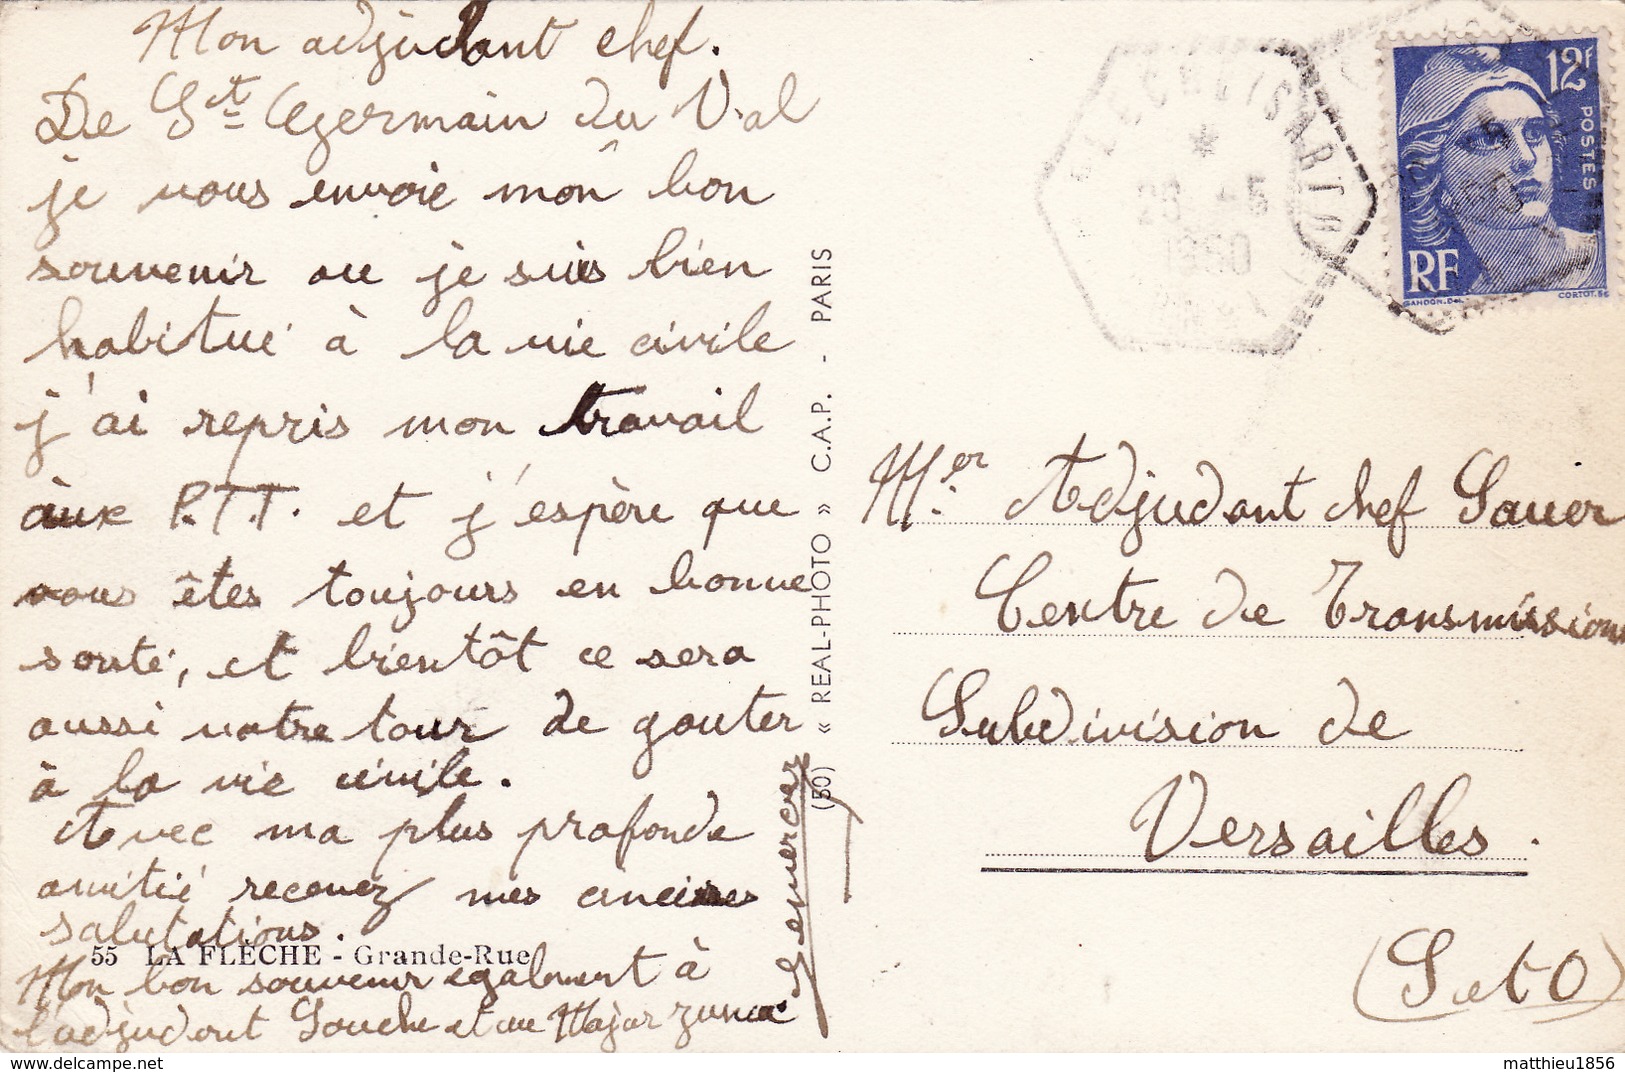 Mon adjudant chef.
De St Germain du Val
je vous envoie mon bon
souvenir ou je suis bien
habitué à la vie civile
j'ai repris mon travail
aux P.T.T. et j'espère que
vous êtes toujours en bonne
santé, et bientôt ce sera
aussi votre tour de gouter
à la vie civile.
Avec ma plus profonde
amitié recevez mes
salutations.
55 LA FLÈCHE - Grande-Rue
Mon bon souvenir egalement à
l'adjudant Souche et au Major
(50) « REAL-PHOTO » C.A.P. - PARIS
12F
POSTES
RF
GANDON. Del
CORTOT. Sc
1950
Mer. Adjudant chef Sauer
Centre de Transmissions
Subdivision de
Versailles.
(S et O)
matthieu1856